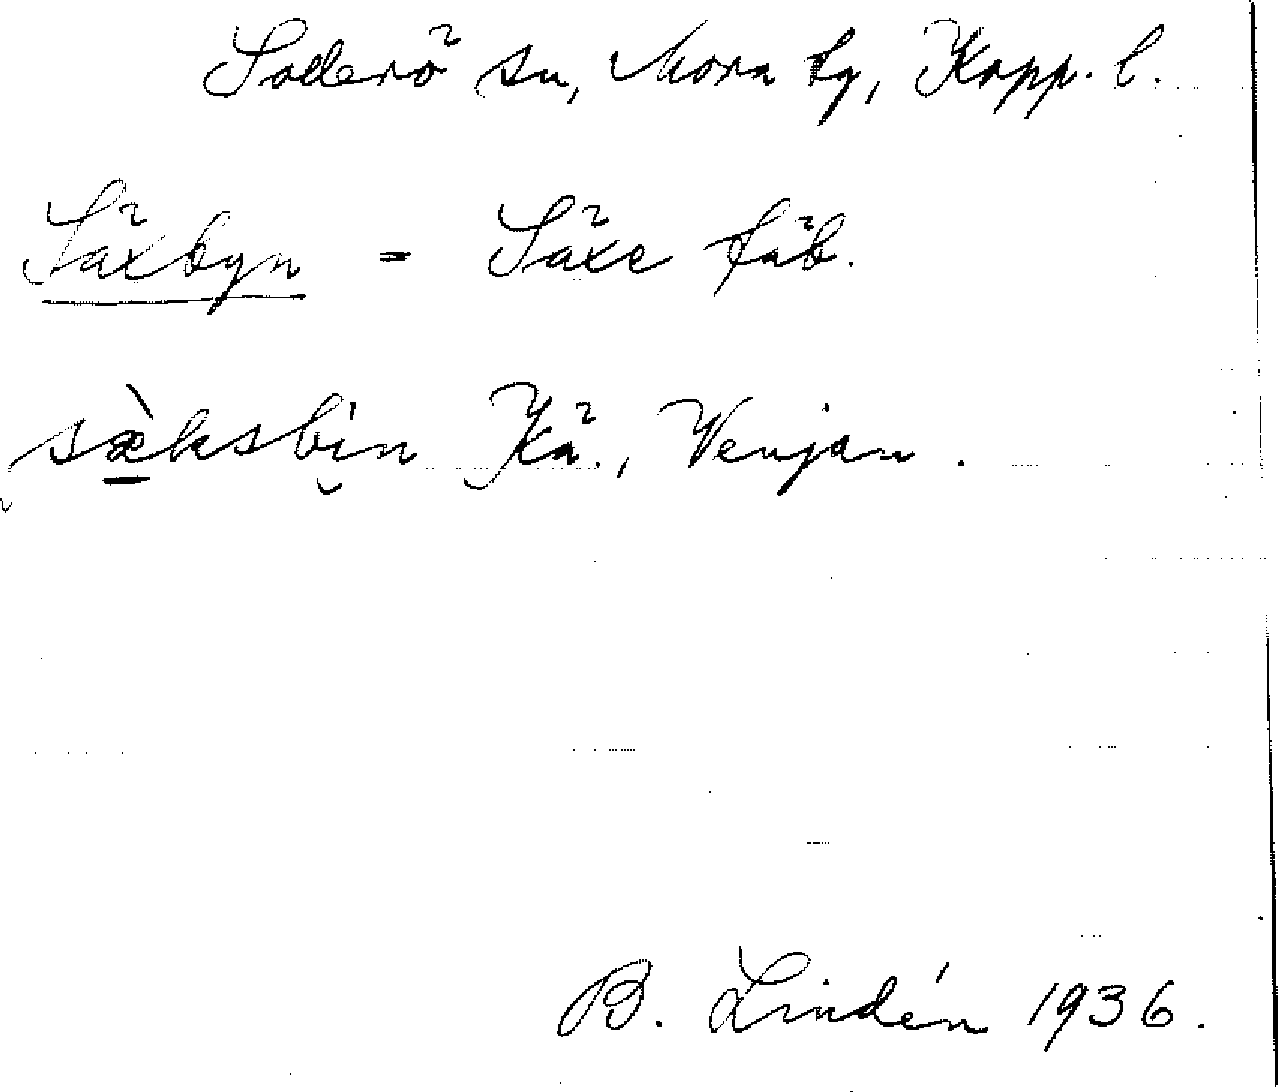 Sollerö sn, Mora tg, Kopp. l.
Säxbyn = Säxe fäb.
sæ̀ksbin Kä., Venjan.
B. Lindén 1936.